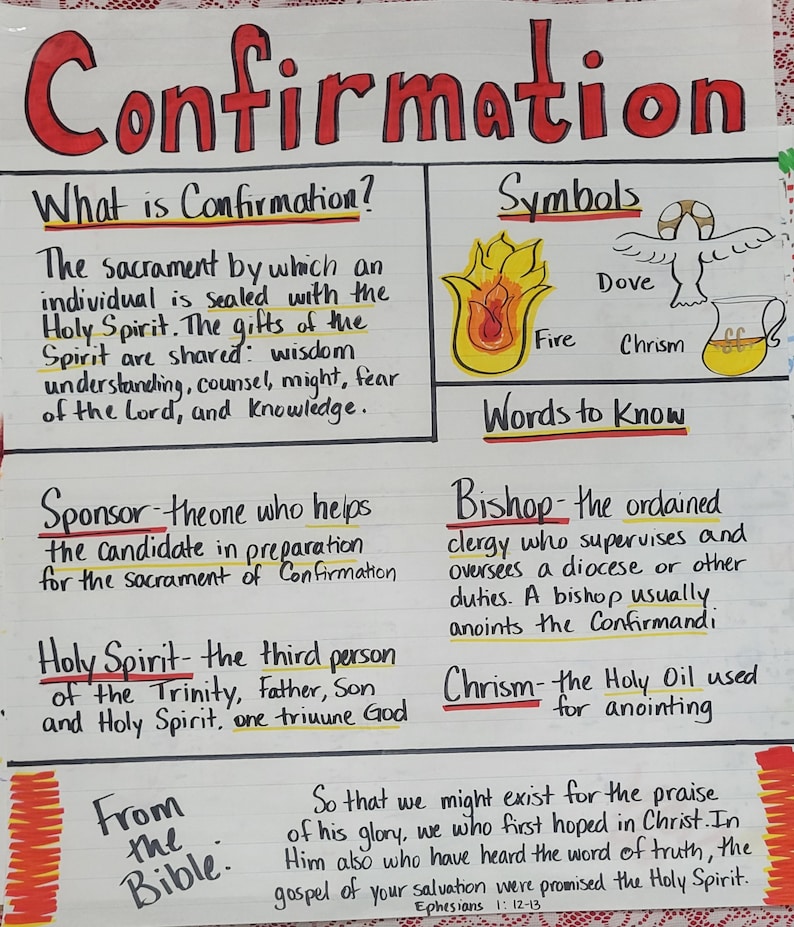 Confirmation
What is Confirmation?
The sacrament by which an
individual is sealed with the
Holy Spirit. The gifts of the
Spirit are shared: wisdom
understanding, counsel, might, fear
of the Lord, and Knowledge.
Symbols
Dove
Fire
Chrism
Words to Know
Sponsor - the one who helps
the candidate in preparation
for the sacrament of Confirmation
Holy Spirit - the third person
of the Trinity, Father, Son
and Holy Spirit. one triuune God
Bishop - the ordained
clergy who supervises and
oversees a diocese or other
duties. A bishop usually
anoints the Confirmandi
Chrism - the Holy Oil used
for anointing
From
the
Bible:
So that we might exist for the praise
of his glory, we who first hoped in Christ. In
Him also who have heard the word of truth, the
gospel of your salvation were promised the Holy Spirit.
Ephesians 1: 12-13